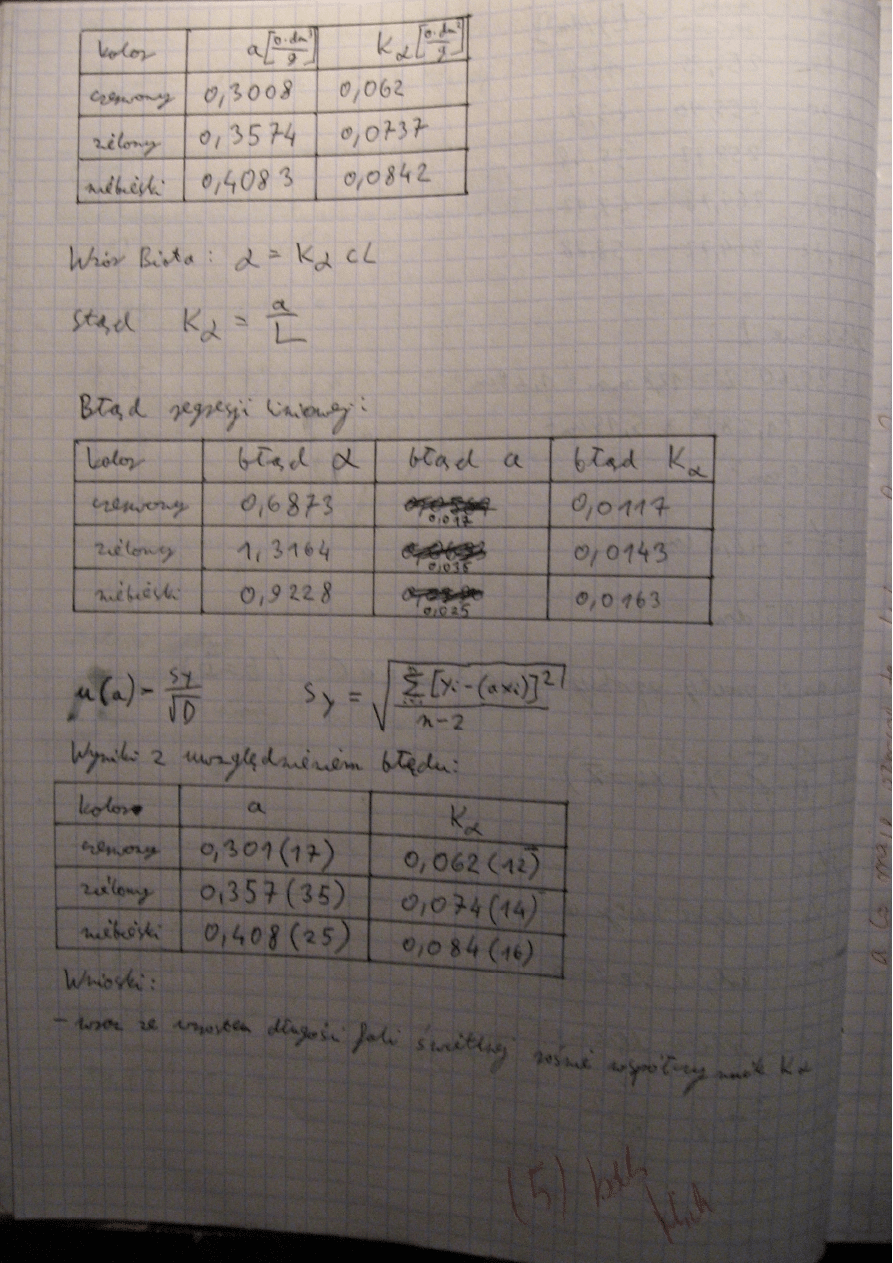 kolor a[o·dm³/g] Kα[o·dm³/g]
czerwony 0,3008 0,062
zielony 0,3574 0,0737
niebieski 0,4083 0,0842
Wzór Biota: α = Kα cL
stąd Kα = a/L
Błąd regresji liniowej:
kolor błąd α błąd a błąd Kα
czerwony 0,6873 0,017 0,0117
zielony 1,3164 0,035 0,0143
niebieski 0,9228 0,025 0,0163
u(a) = Sy/√D Sy = √(Σ[yi-(axi)]²/n-2)
Wyniki z uwzględnieniem błędu:
kolor a Kα
czerwony 0,301(17) 0,062(12)
zielony 0,357(35) 0,074(14)
niebieski 0,408(25) 0,084(16)
Wnioski:
- wraz ze wzrostem długości fali świetlnej rośnie współczynnik Kα
(5)